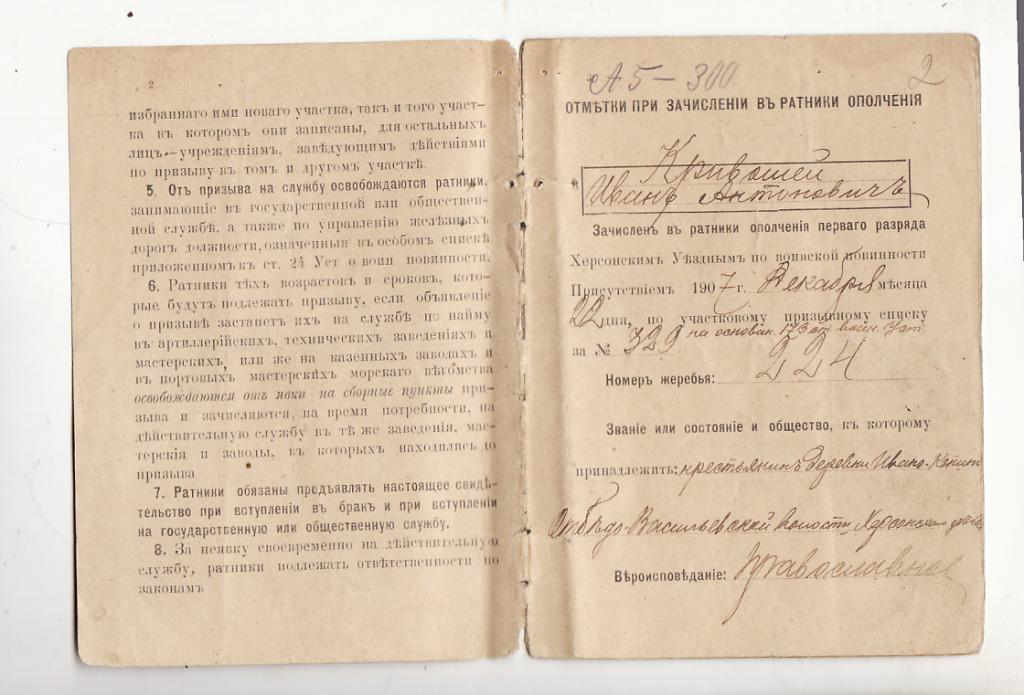 2
избраннаго ими новаго участка, такъ и того участ-
ка въ которомъ они записаны, для остальныхъ
лицъ—учрежденіямъ, завѣдующимъ дѣйствіями
по призыву въ томъ и другомъ участкѣ.
5. Отъ призыва на службу освобождаются ратники,
занимающіе въ государственной или обществен-
ной службѣ, а также по управленію желѣзныхъ
дорогъ должности, означенныя въ особомъ спискѣ
приложенномъ къ ст. 24 Уст о воин повинности.
6. Ратники тѣхъ возрастовъ и сроковъ, кото-
рые будутъ подлежать призыву, если объявленіе
о призывѣ застанетъ ихъ на службѣ по найму
въ артиллерійскихъ, техническихъ заведеніяхъ и
мастерскихъ, или же на казенныхъ заводахъ и
въ портовыхъ мастерскихъ морскаго вѣдомства
освобождаются отъ явки на сборные пункты при-
зыва и зачисляются, на время потребности, на
дѣйствительную службу въ тѣ же заведенія, мас-
терскія и заводы, въ которыхъ находились до
призыва
7. Ратники обязаны предъявлять настоящее свидѣ-
тельство при вступленіи въ бракъ и при вступленіи
на государственную или общественную службу.
8. За неявку своевременно на дѣйствительную
службу, ратники подлежатъ отвѣтственности по
законамъ
А 5 — 300
2
ОТМѢТКИ ПРИ ЗАЧИСЛЕНІИ ВЪ РАТНИКИ ОПОЛЧЕНІЯ
Кривошей
Иванъ Антоновичъ
Зачисленъ въ ратники ополченія перваго разряда
Херсонскимъ Уѣзднымъ по воинской повинности
Присутствіемъ 1907 г. Декабря мѣсяца
22 дня, по участковому призывному списку
за № 329 на основан. 173 ст. воин. Уст.
Номеръ жеребья: 224
Званіе или состояніе и общество, къ которому
принадлежитъ: крестьянинъ деревни Ивано-
Васильевской волости Херсонскаго
Вѣроисповѣданіе: Православное